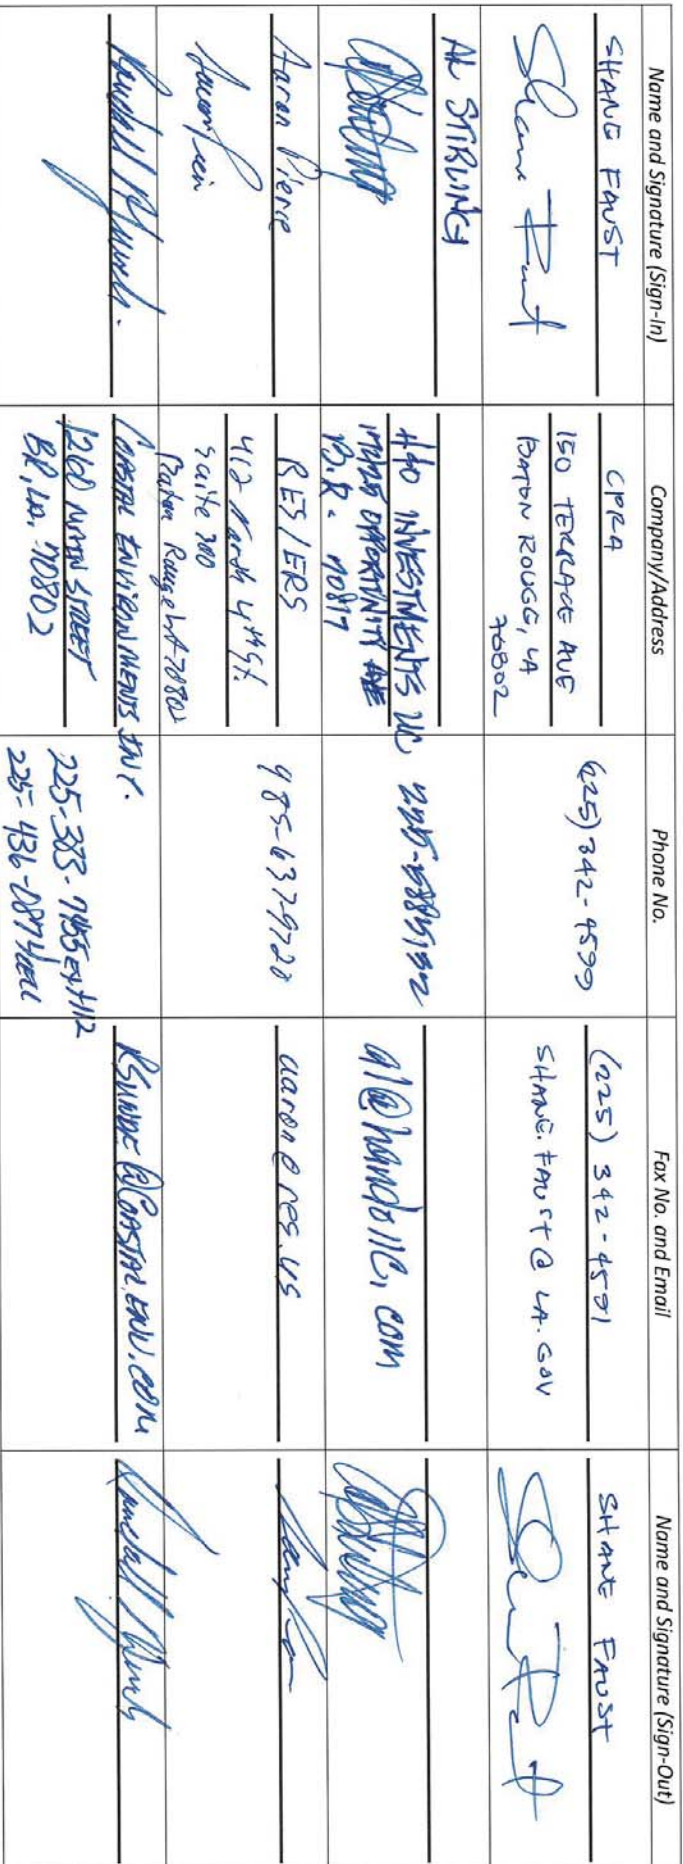 Name and Signature (Sign-In)
Company/Address
Phone No.
Fax No. and Email
Name and Signature (Sign-Out)
SHANE FAUST
Shane Faust
CPRA
150 TERRACE AVE
BATON ROUGE, LA
70802
(225) 342-4599
(225) 342-4591
SHANE.FAUST@LA.GOV
SHANE FAUST
AL STIRLING
INVESTMENTS LLC
OPPORTUNITY AVE
B.R. 70817
al@handollc.com
Aaron Pierce
RES/ERS
412 North 4th St.
suite 300
Baton Rouge LA 70802
985-637-9720
aaron@res.us
COASTAL ENVIRONMENTS INC.
1260 MAIN STREET
BR, LA. 70802
225-383-7455 ext 112
225-436-0874 cell